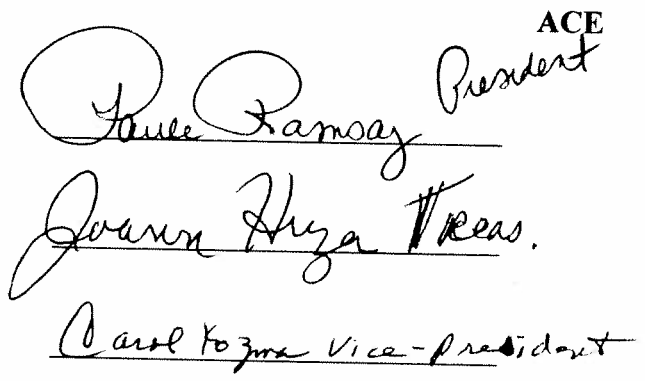 ACE
Ramsay President
Joann Huza Treas.
Carol Kozma Vice-President